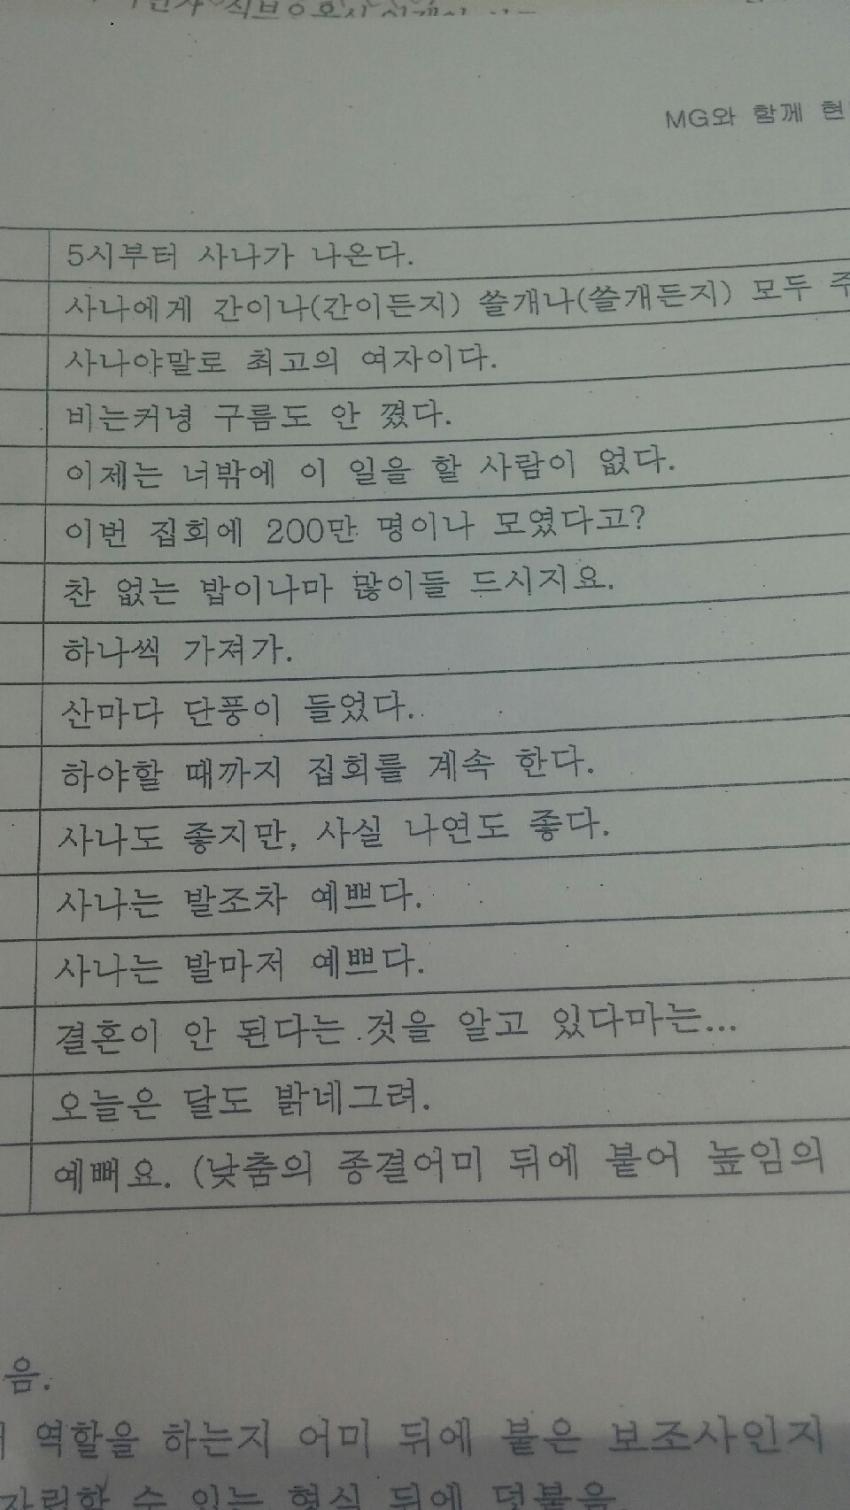 MG와 함께 현
5시부터 사나가 나온다.
사나에게 간이나(간이든지) 쓸개나(쓸개든지) 모두 주
사나야말로 최고의 여자이다.
비는커녕 구름도 안 꼈다.
이제는 너밖에 이 일을 할 사람이 없다.
이번 집회에 200만 명이나 모였다고?
찬 없는 밥이나마 많이들 드시지요.
하나씩 가져가.
산마다 단풍이 들었다.
하야할 때까지 집회를 계속 한다.
사나도 좋지만, 사실 나연도 좋다.
사나는 발조차 예쁘다.
사나는 발마저 예쁘다.
결혼이 안 된다는 것을 알고 있다마는...
오늘은 달도 밝네그려.
예뻐요. (낮춤의 종결어미 뒤에 붙어 높임의
음.
역할을 하는지 어미 뒤에 붙은 보조사인지
자리할 수 있는 형식 뒤에 덧붙음